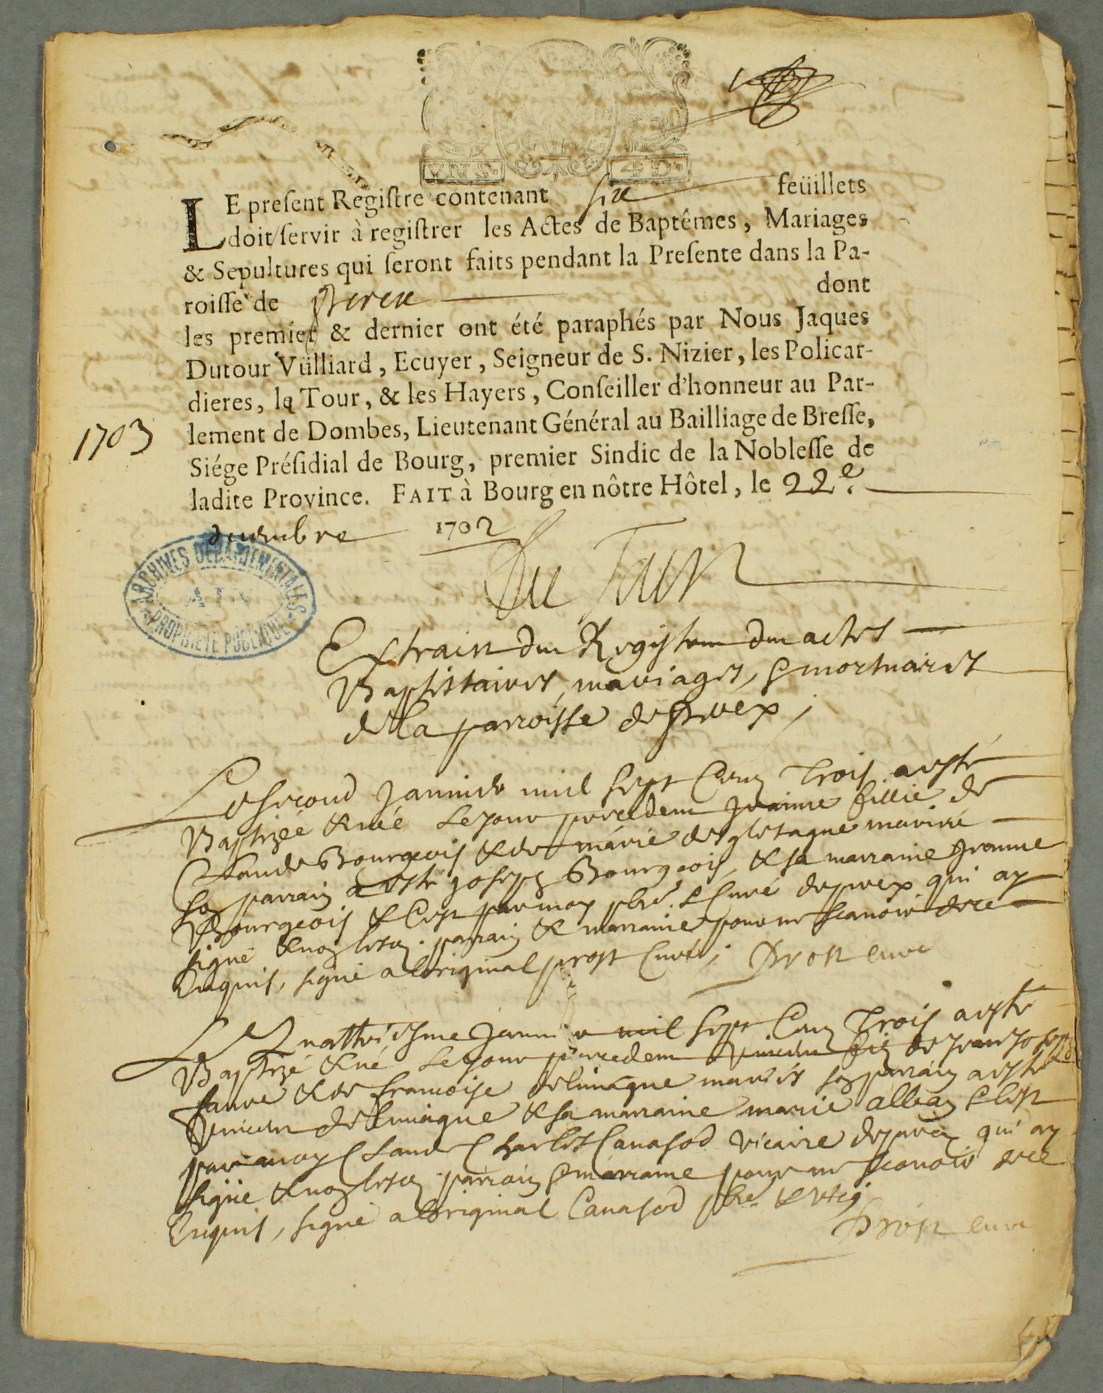 LE present Registre contenant six feüillets
doit servir à registrer les Actes de Baptêmes, Mariages
& Sepultures qui seront faits pendant la Presente dans la Pa-
roisse de dont
les premier & dernier ont été paraphés par Nous Jaques
Dutour Vülliard, Ecuyer, Seigneur de S. Nizier, les Policar-
dieres, la Tour, & les Hayers, Conseiller d'honneur au Par-
1703
lement de Dombes, Lieutenant Général au Bailliage de Bresse,
Siége Présidial de Bourg, premier Sindic de la Noblesse de
ladite Province. FAIT à Bourg en nôtre Hôtel, le 22e.
decembre 1702
Du Tour
ARCHIVES DÉPARTEMENTALES
AIN
PROPRIÉTÉ PUBLIQUE
Extrait du Registre des actes
Baptistaires, mariages, & mortuaires
de la parroisse de
Le second Janvier mil sept Cens Trois a esté
Baptizée & née le jour precedent Jeanne fillie de
Claude Bourgeois & de marie de gletagne mariés
son parrain a esté Joseph Bourgeois, & sa marraine
Bourgeois & C'est par moy pbre & Curé de qui ay
signé & non lesd. parrain & marraine pour ne scavoir de ce
Enquis, signé a l'original prost Curé; Prost curé
Le Quattriesme Janvier mil sept Cens Trois a esté
Baptizé & né le jour precedent fis de Jean Joseph
& de francoise mariés son parrain a esté
& sa marraine marie & C'est
par moy Claude Charles Canasod vicaire de qui ay
signé & non lesd. parrain & marraine pour ne scavoir de ce
Enquis, signé a l'original Canasod pbre & vic.
Prost curé